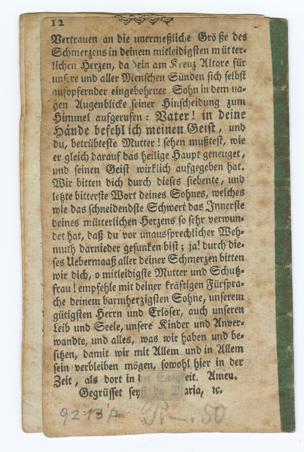 12
Vertrauen an die unermeßliche Größe des
Schmerzens in deinem mitleidigsten mütter-
lichen Herzen, da dein am Kreuz Altare für
unsere und aller Menschen Sünden sich selbst
aufopfernder eingebohrner Sohn in dem na-
hen Augenblicke seiner Hinscheidung zum
Himmel aufgerufen: Vater! in deine
Hände befehl ich meinen Geist, und
du, betrübteste Mutter! sehen mußtest, wie
er gleich darauf das heilige Haupt geneuget,
und seinen Geist wirklich aufgegeben hat.
Wir bitten dich durch dieses siebente, und
letzte bitterste Wort deines Sohnes, welches
wie das schneidendste Schwert das Innerste
deines mütterlichen Herzens so sehr verwun-
det hat, daß du vor unaussprechlicher Weh-
muth darnieder gesunken bist; ja! durch die-
ses Uebermaaß aller deiner Schmerzen bitten
wir dich, o mitleidigste Mutter und Schutz-
frau! empfehle mit deiner kräftigen Fürspra-
che deinem barmherzigsten Sohne, unserem
gütigsten Herrn und Erlöser, auch unseren
Leib und Seele, unsere Kinder und Anver-
wandte, und alles, was wir haben und be-
sitzen, damit wir mit Allem und in Allem
sein verbleiben mögen, sowohl hier in der
Zeit, als dort in der Ewigkeit. Amen.
Gegrüsset seyst du Maria, ꝛc.
9213A .50